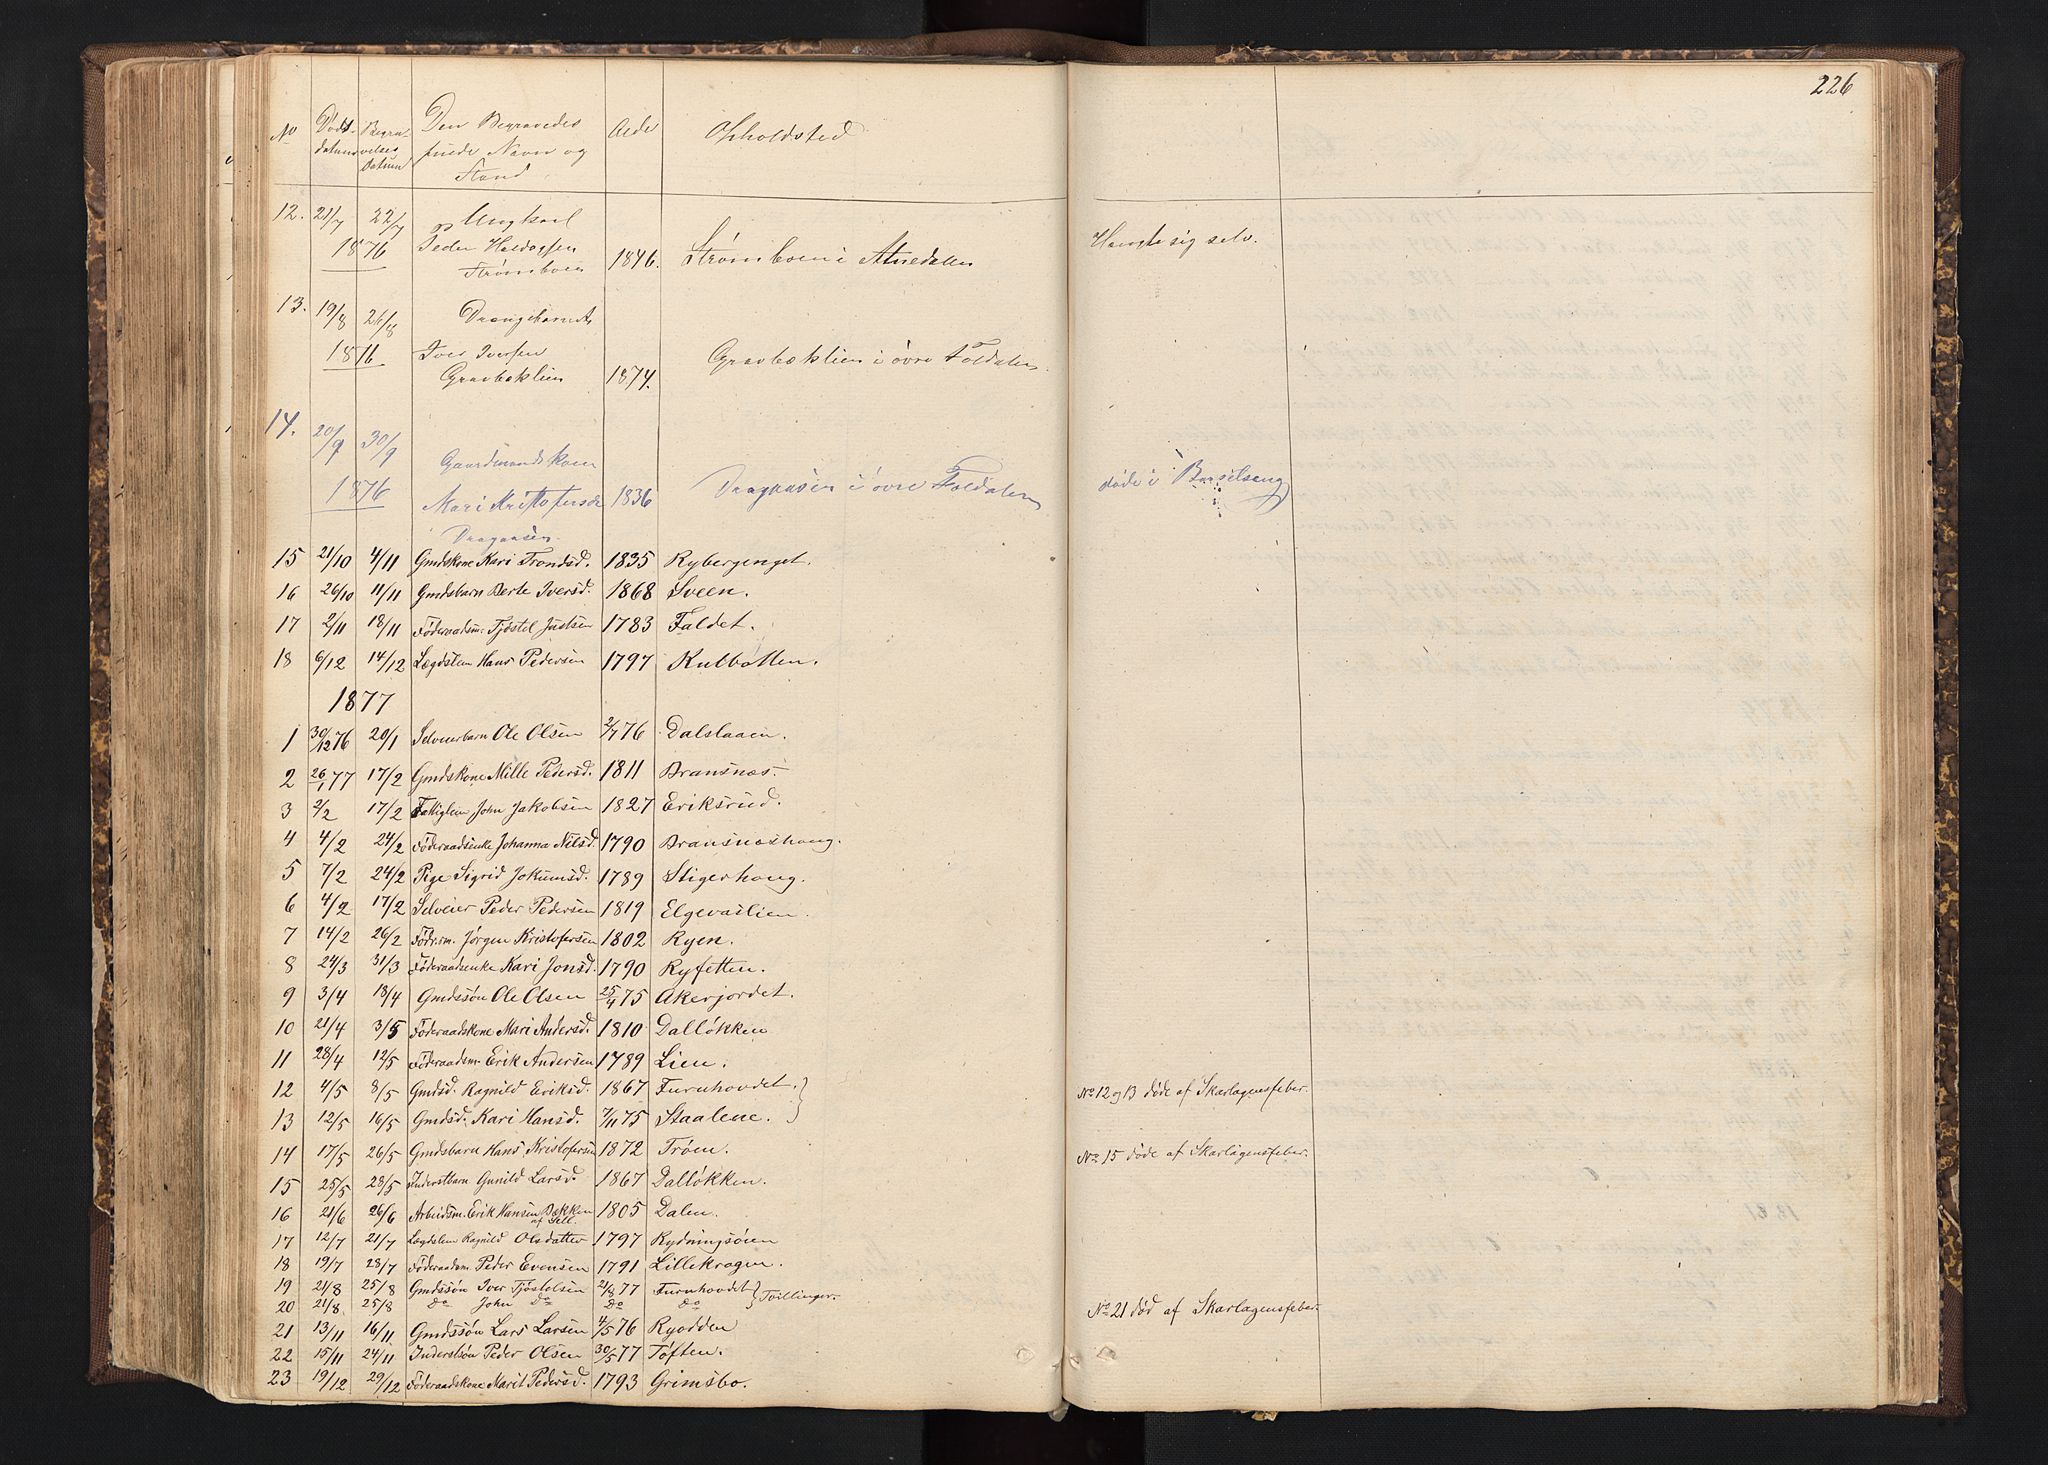 226
No Døds- datum Begra- velses Datum Den Begravedes fulde Navn og Stand Alder Opholdsted
12. 21/7 22/7 Ungkarl
1876 Peder Haldogsen 1846. Strømboen i Atnedalen Hængte sig selv.
Strømboen
13. 19/8 26/8 Drengebarnet
1876 Iver Iversen Gravbæklien i øvre Foldalen
Gravbæklien 1874.
14. 20/9 30/9 Gaardmandskone
1876 Mari Kristofersd 1836 Dragaasen i øvre Foldalen døde i Barselseng
Dragaasen.
15 21/10 4/11 Gmdskone Kari Trondsd. 1835 Rybergenget.
16 26/10 11/11 Gmdsbarn Berte Iversd. 1868 Sveen.
17 2/11 18/11 Føderaadsm. Tjøstel Justsen 1783 Faldet.
18 6/12 14/12 Lægdslem Hans Pedersen 1797 Kulbotten.
1877
1 30/12 76 20/1 Selveierbarn Ole Olsen 2/7 76 Dalslaaen.
2 26/1 77 17/2 Gmdskone Mille Pedersd. 1811 Bransnæs.
3 2/2 17/2 Fattiglem John Jakobsen 1827 Eriksrud.
4 4/2 24/2 Føderaadsenke Johanna Nilsd. 1790 Bransnæshaug.
5 7/2 24/2 Pige Sigrid Jokumsd. 1789 Stigerhaug.
6 4/2 17/2 Selveier Peder Pedersen 1819 Elgevaslien.
7 14/2 26/2 Fødr.m. Jørgen Kristofersen 1802 Ryen.
8 24/3 31/3 Føderaadsenke Kari Jonsd. 1790 Ryfetten.
9 3/4 18/4 Gmdssøn Ole Olsen 25/4 75 Akerjordet.
10 21/4 3/5 Føderaadskone Mari Andersd. 1810 Dalløkken
11 28/4 12/5 Føderaadsm. Erik Andersen 1789 Lien.
12 4/5 8/5 Gmdsd. Ragnild Eriksd. 1867 Furuhovdet. No 12 og 13 døde af Skarlagensfeber.
13 12/5 16/5 Gmdsd. Kari Hansd. 7/11 75 Staalene.
14 17/5 26/5 Gmdsbarn Hans Kristofersen 1872 Trøen. No 15 døde af Skarlagensfeber.
15 25/5 28/5 Inderstbarn Gunild Larsd. 1867 Dalløkken.
16 21/6 26/6 Arbeidsm. Erik Hansen Bækken af Sell. 1805 Dalen.
17 12/7 21/7 Lægdslem Ragnild Olsdatter 1797 Rydningsøien
18 19/7 28/7 Føderaadsm. Peder Evensen 1791 Lillekrogen.
19 21/8 25/8 Gmdssøn Iver Tjøstelsen 21/8 77 Furuhovdet Tvillinger.
20 21/8 25/8 Do John Do Do Do
21 13/11 16/11 Gmdssøn Lars Larsen 4/5 76 Ryodden No 21 død af Skarlagensfeber.
22 15/11 24/11 Inderstsøn Peder Olsen 30/5 77 Tøften.
23 19/12 29/12 Føderaadskone Marit Pedersd. 1793 Grimsbo.